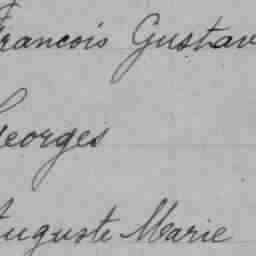 François Gustav
Georges
Auguste Marie